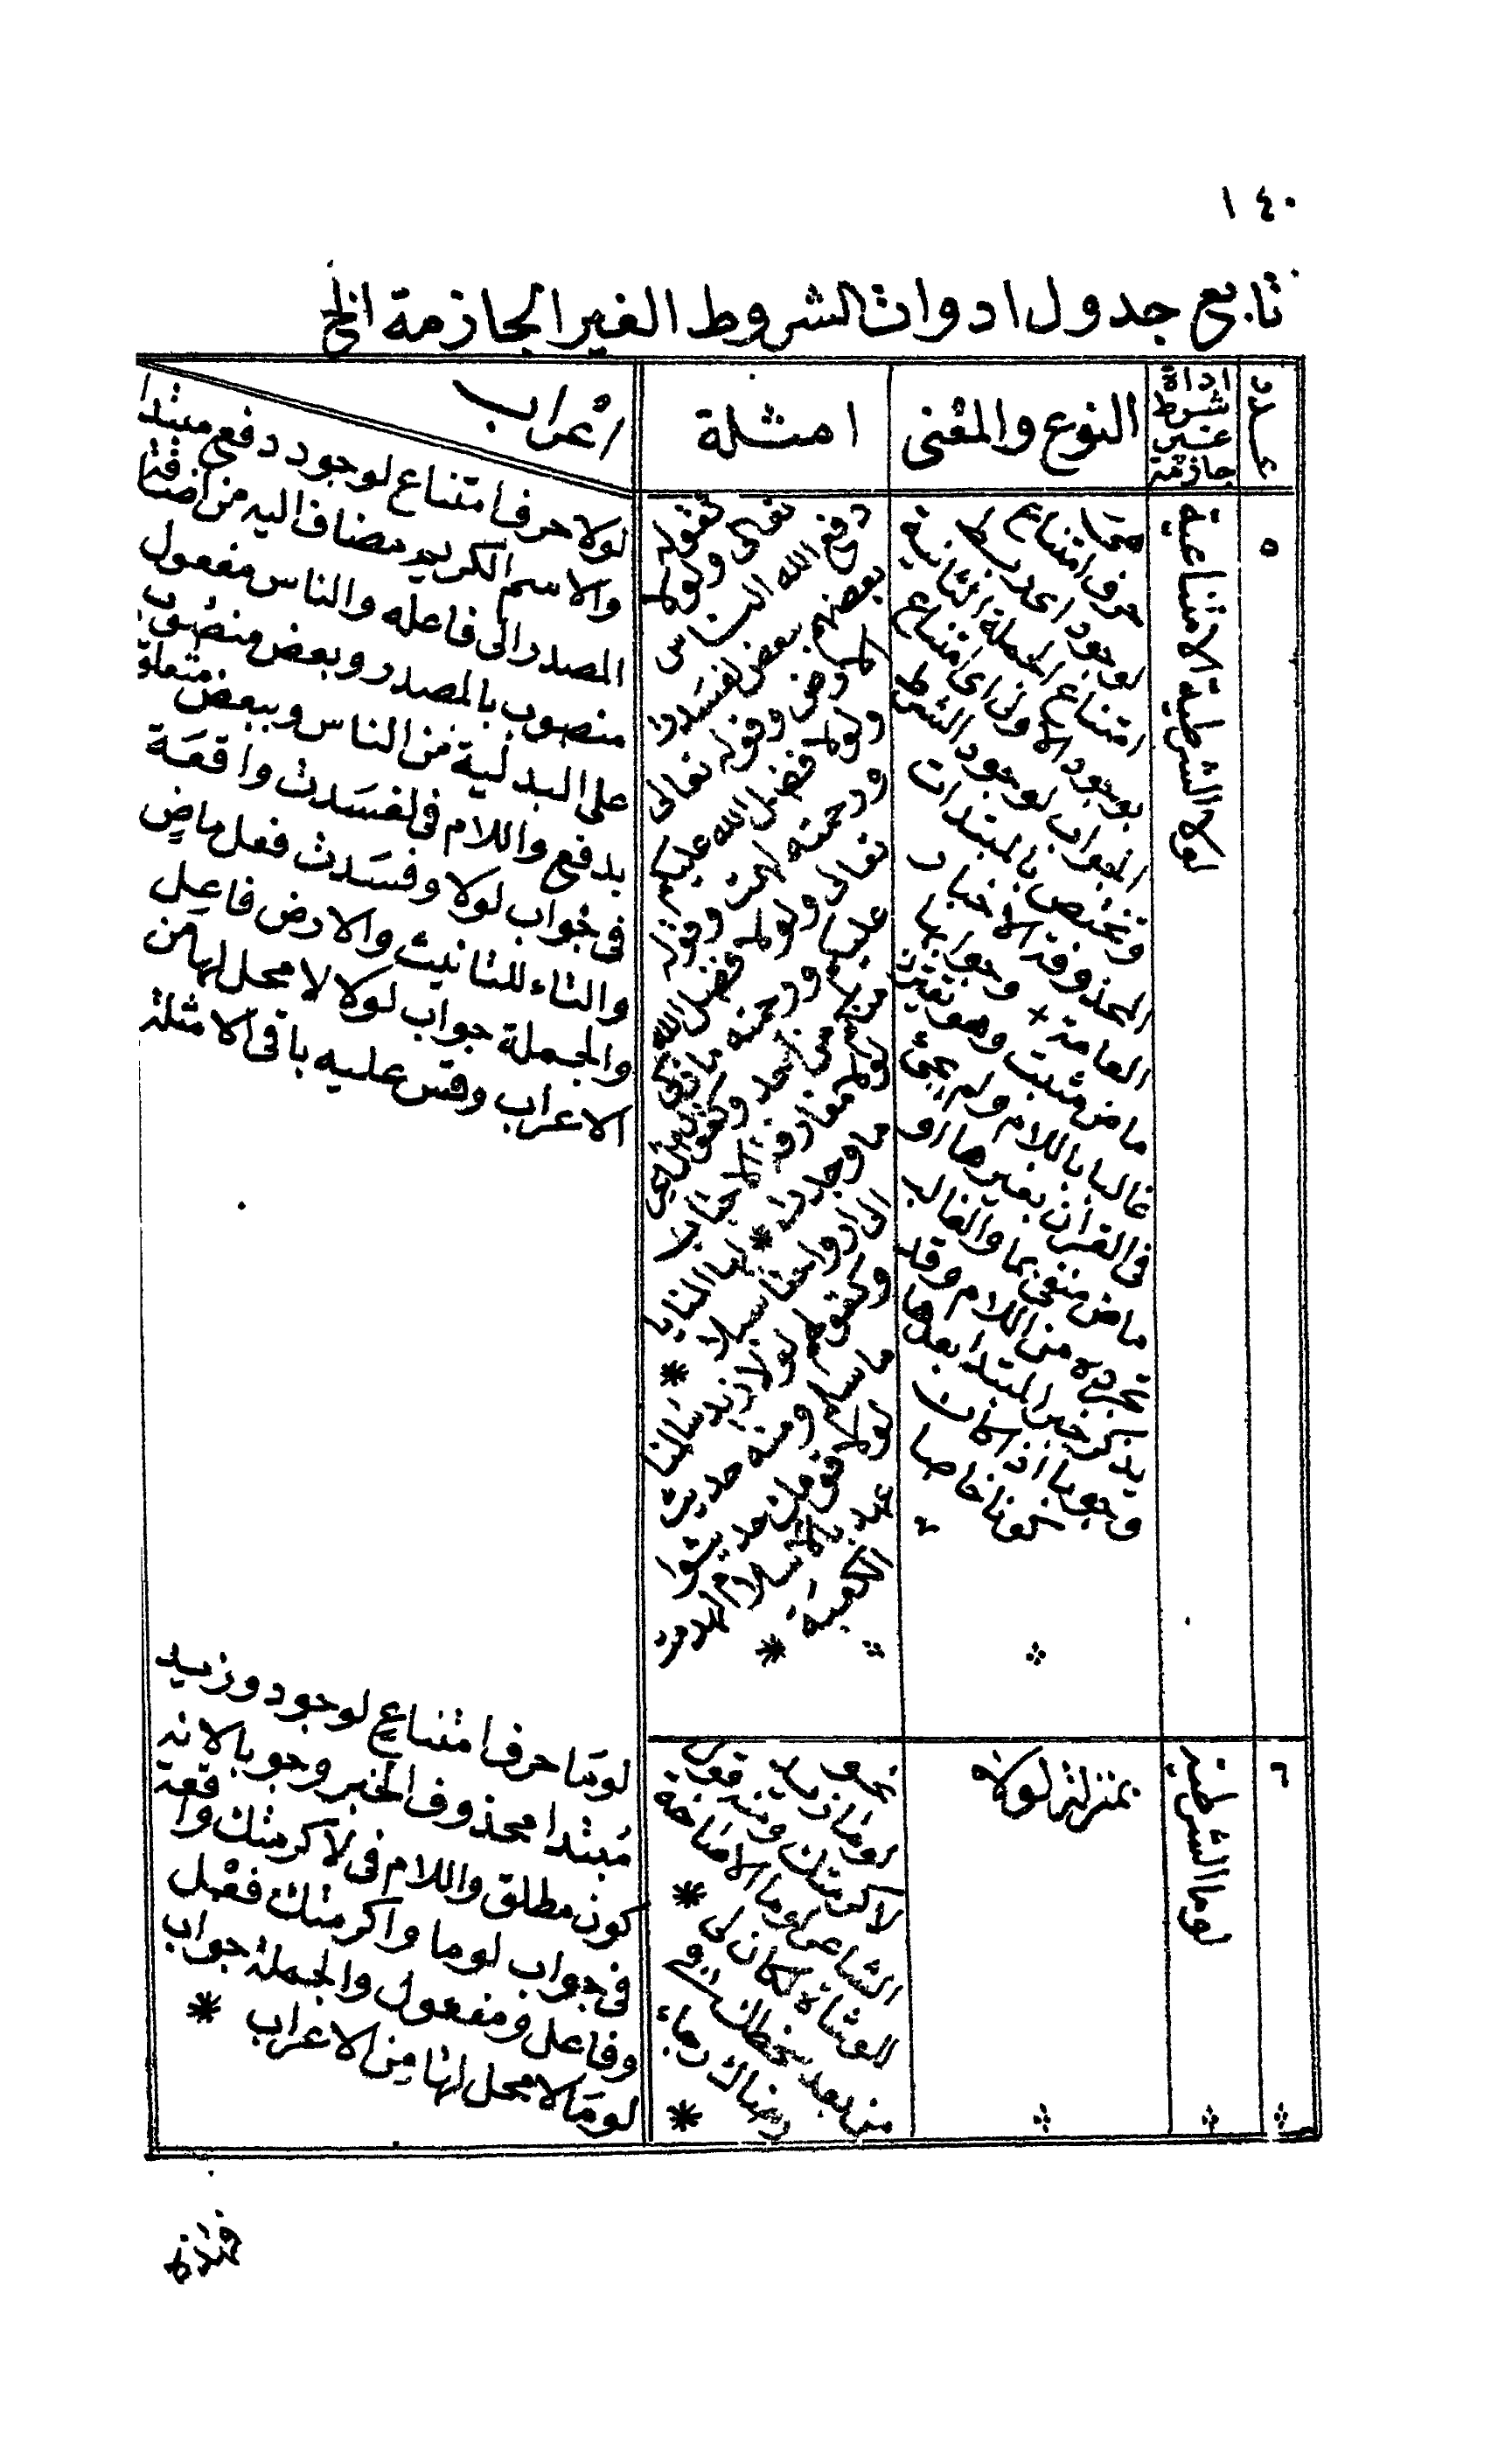 ١٤٠
تابع جدول ادوات الشروط الغير الجازمة الخ
عدد
اداة
شرط
غير
جازمة
النوع والمعنى
امثلة
اعراب
٥
لولا الشرطية الامتناعية
حرف امتناع
لوجود اى ربط
امتناع الجملة الثانية
بوجود الاولى اى امتناع
الجواب لوجود الشرط
وتختص بالمبتدات
المحذوفة الاخبار
العامة × وجوابها
ماض مثبت وهو يقترن
غالبا باللام ولم يجئ
فى القرأن بغيرها او
ماض منفى بما والغالب
تجرده من اللام وقد
يذكر خبر المبتدا بعدها
وجوبا اذا كان
كونا خاصا
كقوله
تعالى ولولا
دفع الله الناس
بعضهم ببعض لفسدت
الارض وقوله تعالى
ولولا فضل الله عليكم
ورحمته
وقوله
تعالى ولولا فضل الله
عليكم ورحمته ما زكى
منكم من احد
لولا
ما وجدت
لها المنايا
الى ارواحنا سبلا *
لولا زيد سالمنا
ما سلم ومنه حديث
لولا قومك حديثوا
عهد بالاسلام لهدمت
الكعبة *
لولا حرف امتناع لوجود دفع مبتدا
والاسم الكريم مضاف اليه من اضافة
المصدر الى فاعله والناس مفعول
منصوب بالمصدر وبعض منصوب
على البدلية من الناس وببعض متعلق
بدفع واللام فى لفسدت واقعة
فى جواب لولا وفسدت فعل ماض
والتاء للتانيث والارض فاعل
والجملة جواب لولا لا محل لها من
الاعراب وقس عليه باقى الامثلة
٦
لوما الشرطية
بمنزلة لولا
نحو
لوما زيد
لاكرمتك ومنه قول
الشاعر لوما الاصاخة
للوشاة لكان لى *
من بعد سخطك فى
رضاك رجاء *
لوما حرف امتناع لوجود وزيد
مبتدا محذوف الخبر وجوبا لانه
كون مطلق واللام فى لاكرمتك واقعة
فى جواب لوما واكرمتك فعل
وفاعل ومفعول والجملة جواب
لوما لا محل لها من الاعراب *